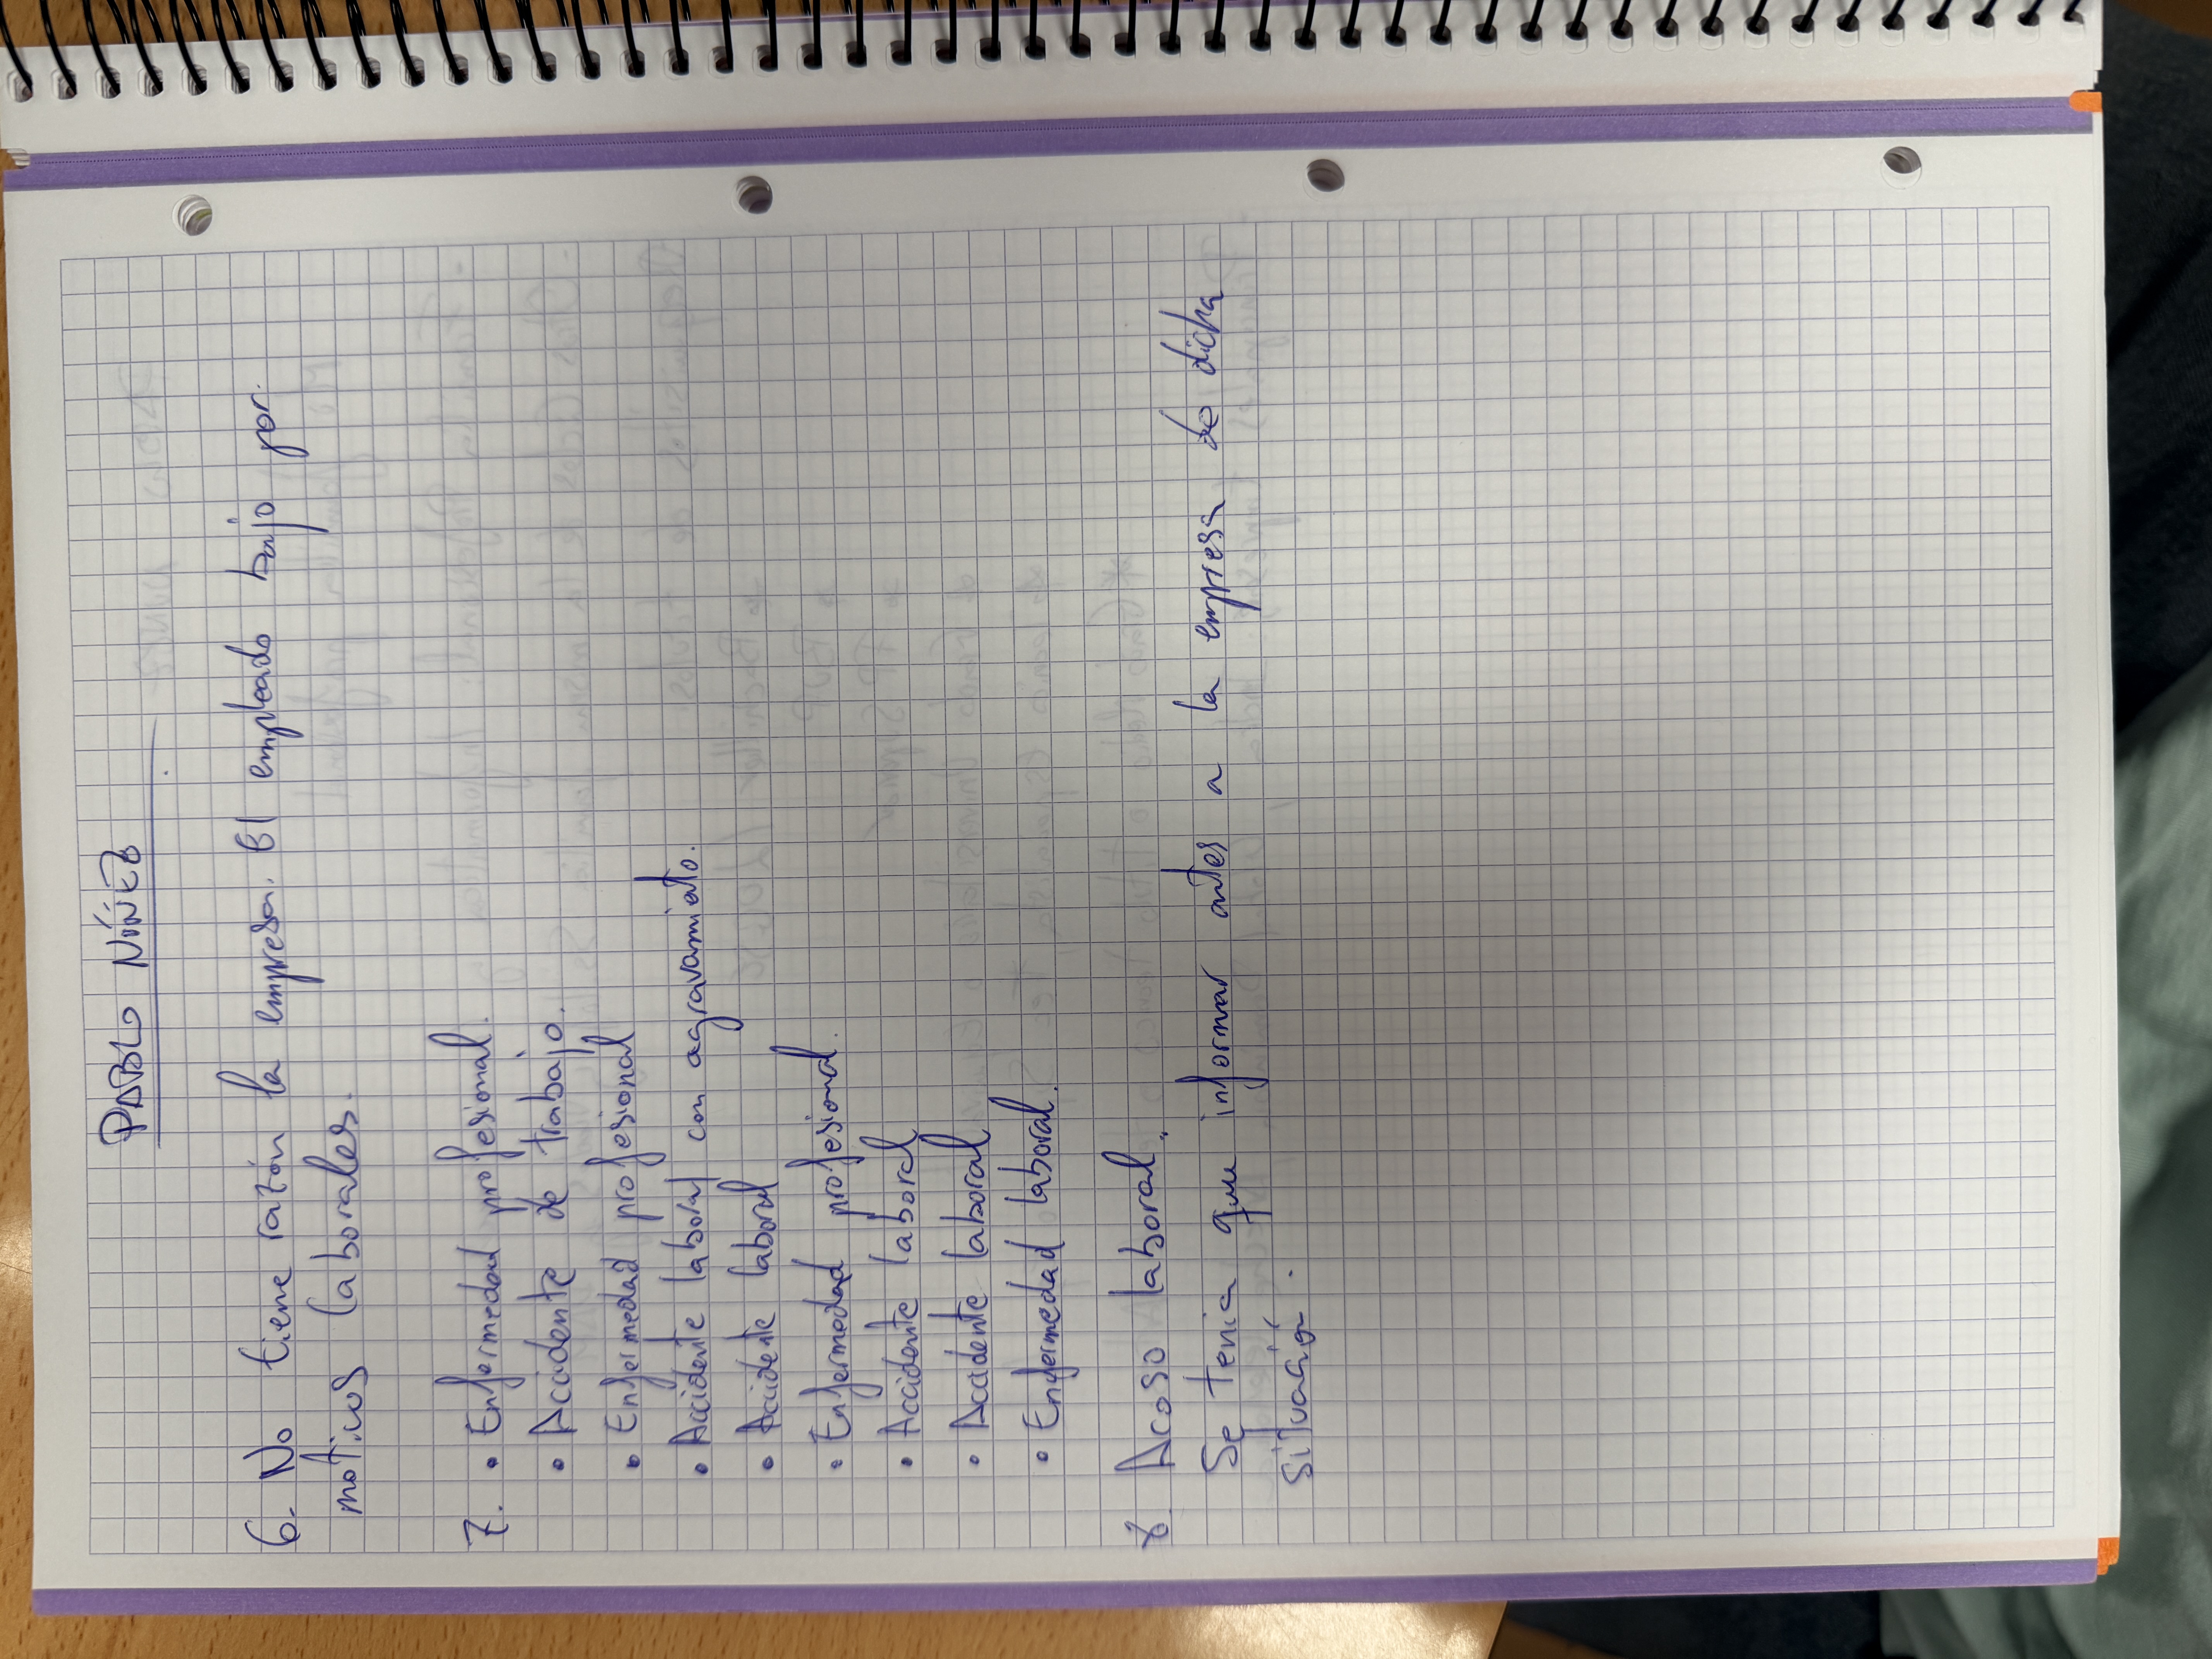 PABLO NÚÑEZ
6. No tiene razón la empresa. El empleado bajo por
motivos laborales.
7. • Enfermedad profesional.
• Accidente de trabajo.
• Enfermedad profesional
• Accidente laboral con agravamiento.
• Accidente laboral
• Enfermedad profesional.
• Accidente laboral
• Accidente laboral
• Enfermedad laboral.
8. Acoso laboral.
Se tenia que informar antes a la empresa de dicha
situación.